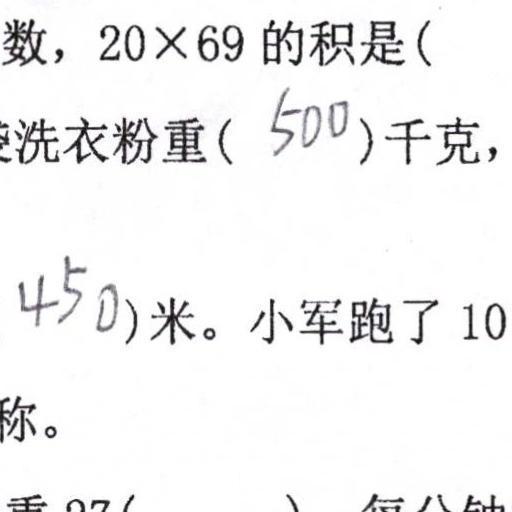 数，20×69 的积是(
洗衣粉重( 500 )千克，
450)米。小军跑了 10
称。
重27( )